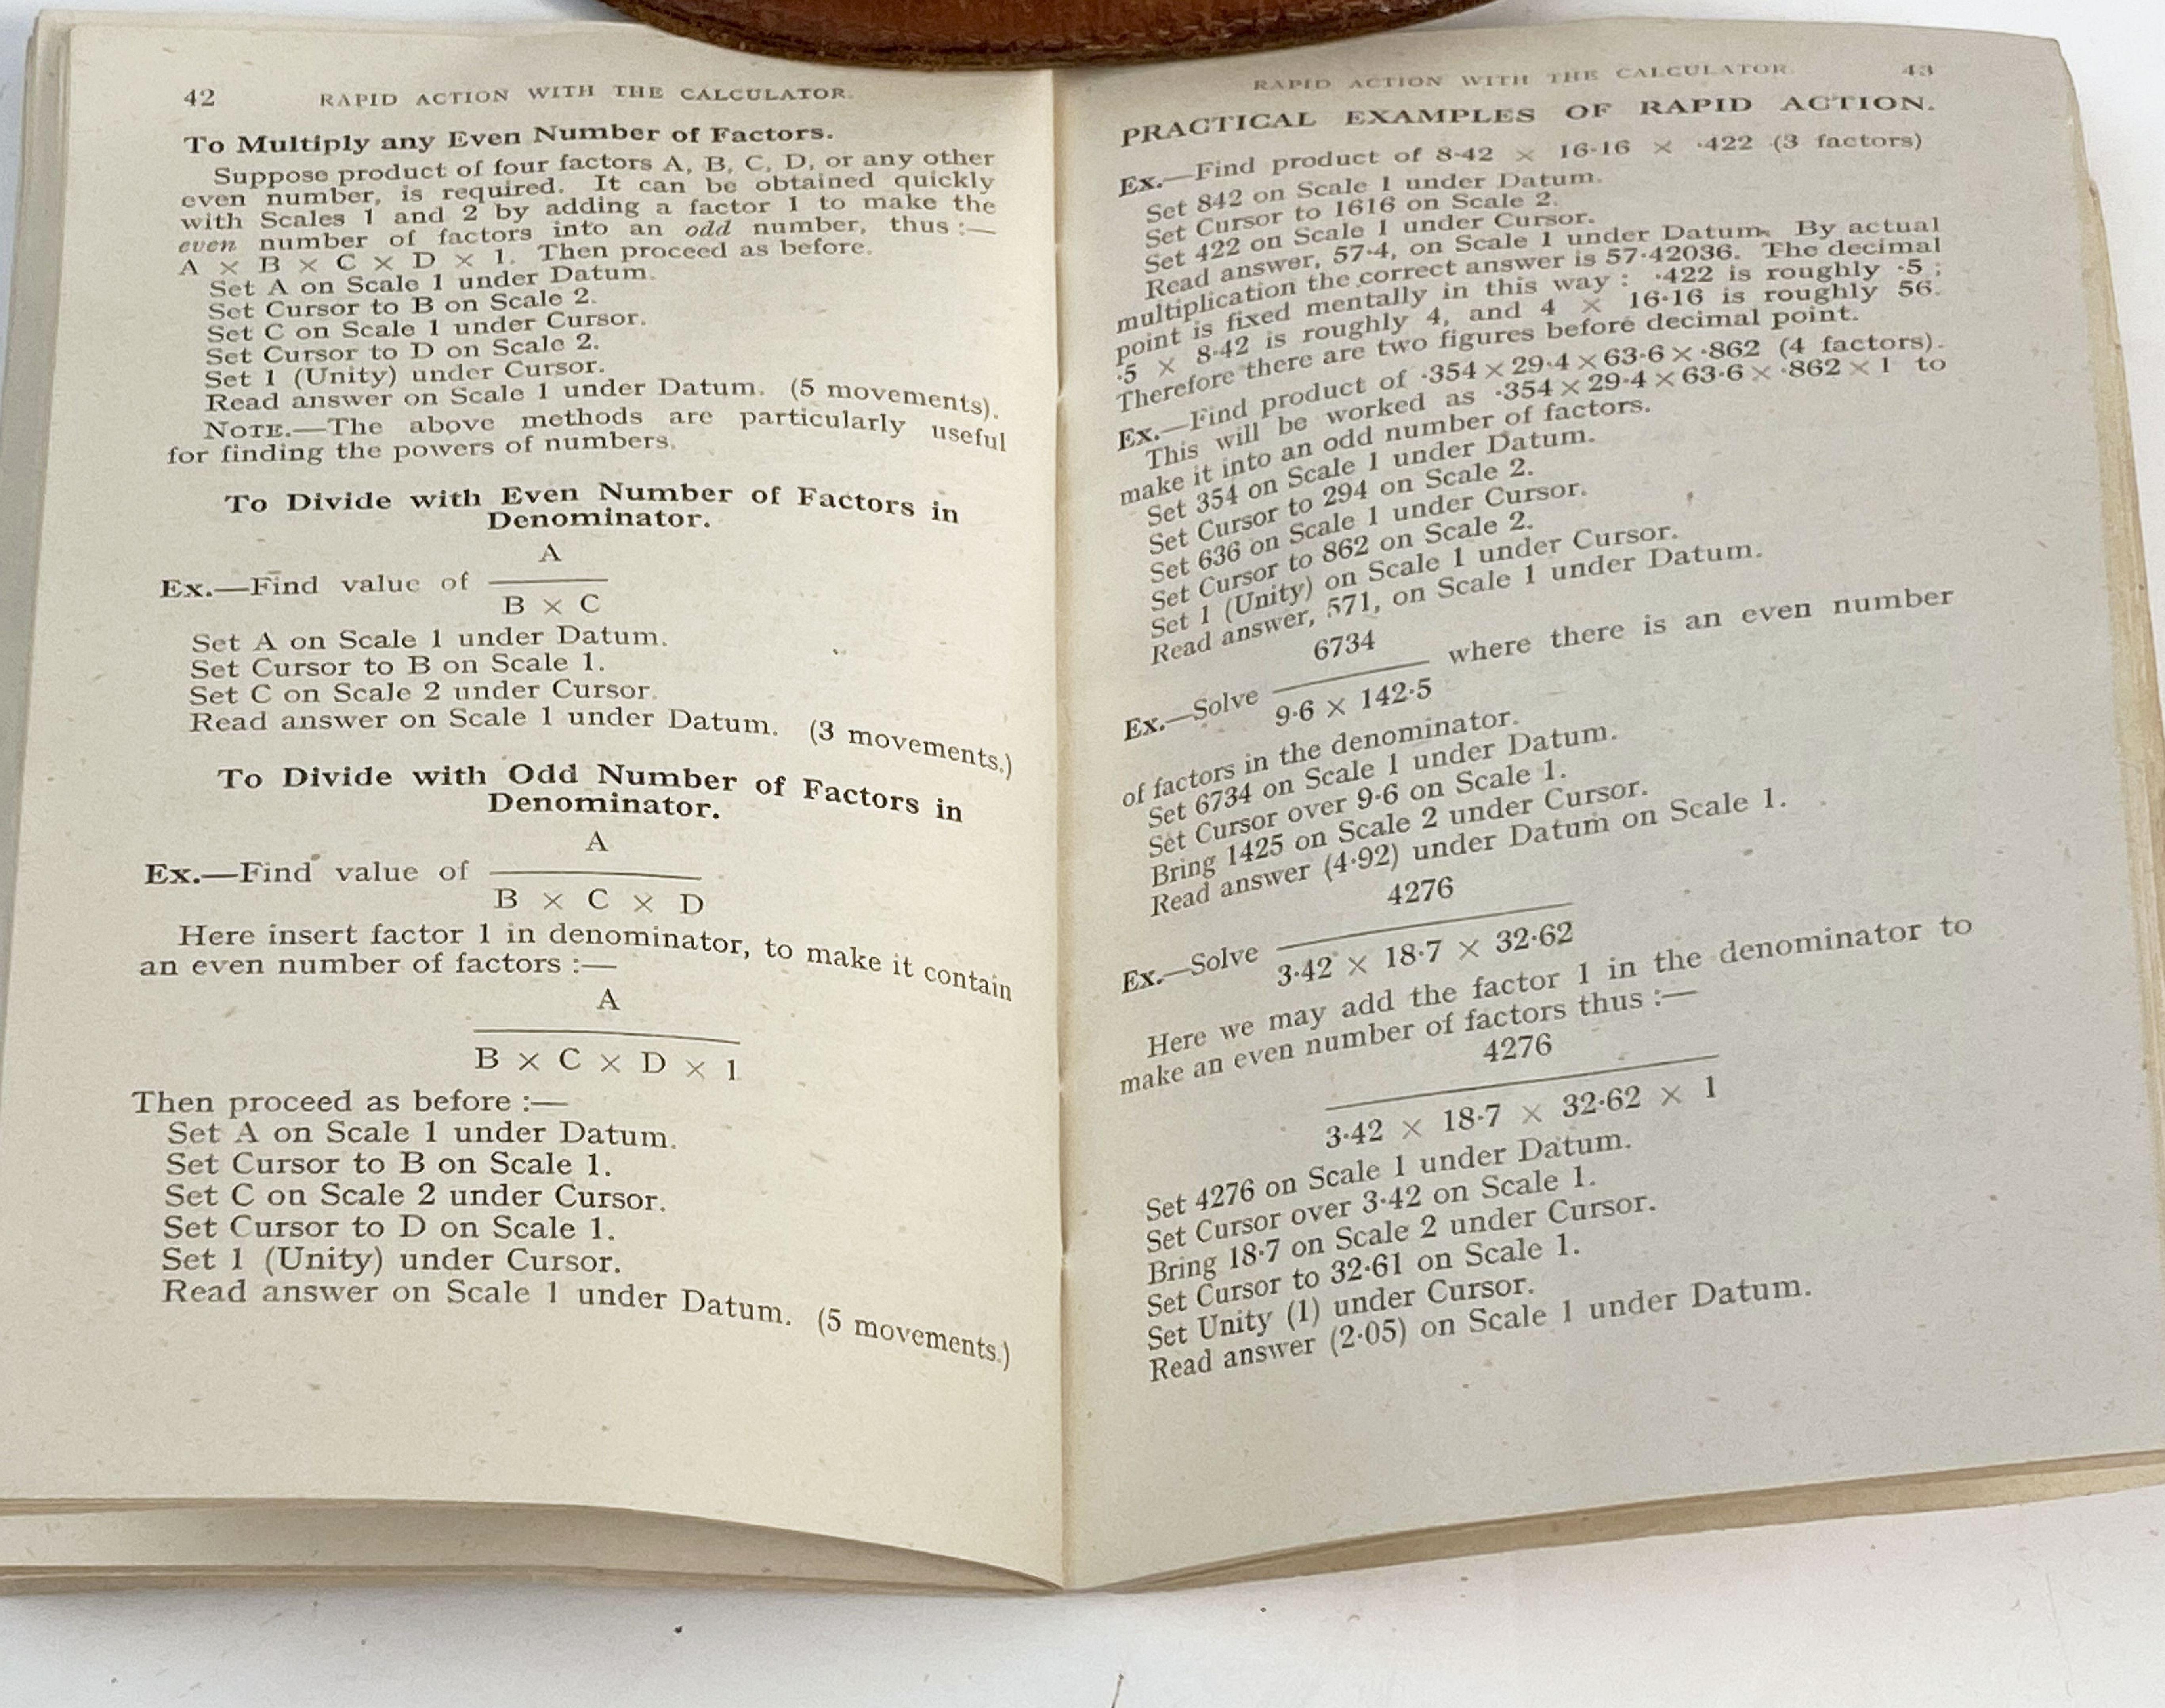 42 RAPID ACTION WITH THE CALCULATOR.
To Multiply any Even Number of Factors.
Suppose product of four factors A, B, C, D, or any other
even number, is required. It can be obtained quickly
with Scales 1 and 2 by adding a factor 1 to make the
even number of factors into an odd number, thus :—
A × B × C × D × 1. Then proceed as before.
Set A on Scale 1 under Datum.
Set Cursor to B on Scale 2.
Set C on Scale 1 under Cursor.
Set Cursor to D on Scale 2.
Set 1 (Unity) under Cursor.
Read answer on Scale 1 under Datum. (5 movements).
NOTE.—The above methods are particularly useful
for finding the powers of numbers.
To Divide with Even Number of Factors in
Denominator.
A
Ex.—Find value of
B × C
Set A on Scale 1 under Datum.
Set Cursor to B on Scale 1.
Set C on Scale 2 under Cursor.
Read answer on Scale 1 under Datum. (3 movements.)
To Divide with Odd Number of Factors in
Denominator.
A
Ex.—Find value of
B × C × D
Here insert factor 1 in denominator, to make it contain
an even number of factors :—
A
B × C × D × 1
Then proceed as before :—
Set A on Scale 1 under Datum.
Set Cursor to B on Scale 1.
Set C on Scale 2 under Cursor.
Set Cursor to D on Scale 1.
Set 1 (Unity) under Cursor.
Read answer on Scale 1 under Datum. (5 movements.)
RAPID ACTION WITH THE CALCULATOR. 43
PRACTICAL EXAMPLES OF RAPID ACTION.
Ex.—Find product of 8·42 × 16·16 × ·422 (3 factors)
Set 842 on Scale 1 under Datum.
Set Cursor to 1616 on Scale 2.
Set 422 on Scale 1 under Cursor.
Read answer, 57·4, on Scale 1 under Datum. By actual
multiplication the correct answer is 57·42036. The decimal
point is fixed mentally in this way : ·422 is roughly ·5 ;
·5 × 8·42 is roughly 4, and 4 × 16·16 is roughly 56.
Therefore there are two figures before decimal point.
Ex.—Find product of ·354 × 29·4 × 63·6 × ·862 (4 factors).
This will be worked as ·354 × 29·4 × 63·6 × ·862 × 1 to
make it into an odd number of factors.
Set 354 on Scale 1 under Datum.
Set Cursor to 294 on Scale 2.
Set 636 on Scale 1 under Cursor.
Set Cursor to 862 on Scale 2.
Set 1 (Unity) on Scale 1 under Cursor.
Read answer, 571, on Scale 1 under Datum.
6734
Ex.—Solve where there is an even number
9·6 × 142·5
of factors in the denominator.
Set 6734 on Scale 1 under Datum.
Set Cursor over 9·6 on Scale 1.
Bring 1425 on Scale 2 under Cursor.
Read answer (4·92) under Datum on Scale 1.
4276
Ex.—Solve
3·42 × 18·7 × 32·62
Here we may add the factor 1 in the denominator to
make an even number of factors thus :—
4276
3·42 × 18·7 × 32·62 × 1
Set 4276 on Scale 1 under Datum.
Set Cursor over 3·42 on Scale 1.
Bring 18·7 on Scale 2 under Cursor.
Set Cursor to 32·61 on Scale 1.
Set Unity (1) under Cursor.
Read answer (2·05) on Scale 1 under Datum.